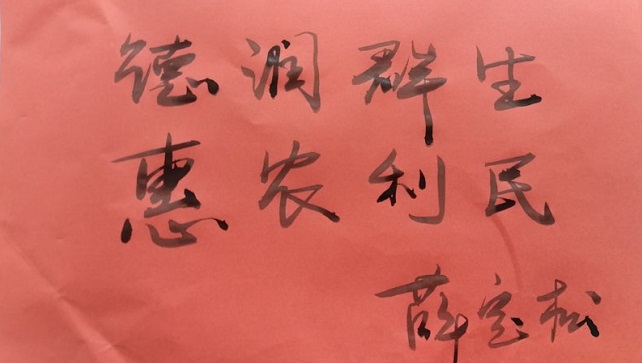 德润群生
惠农利民
薛定松